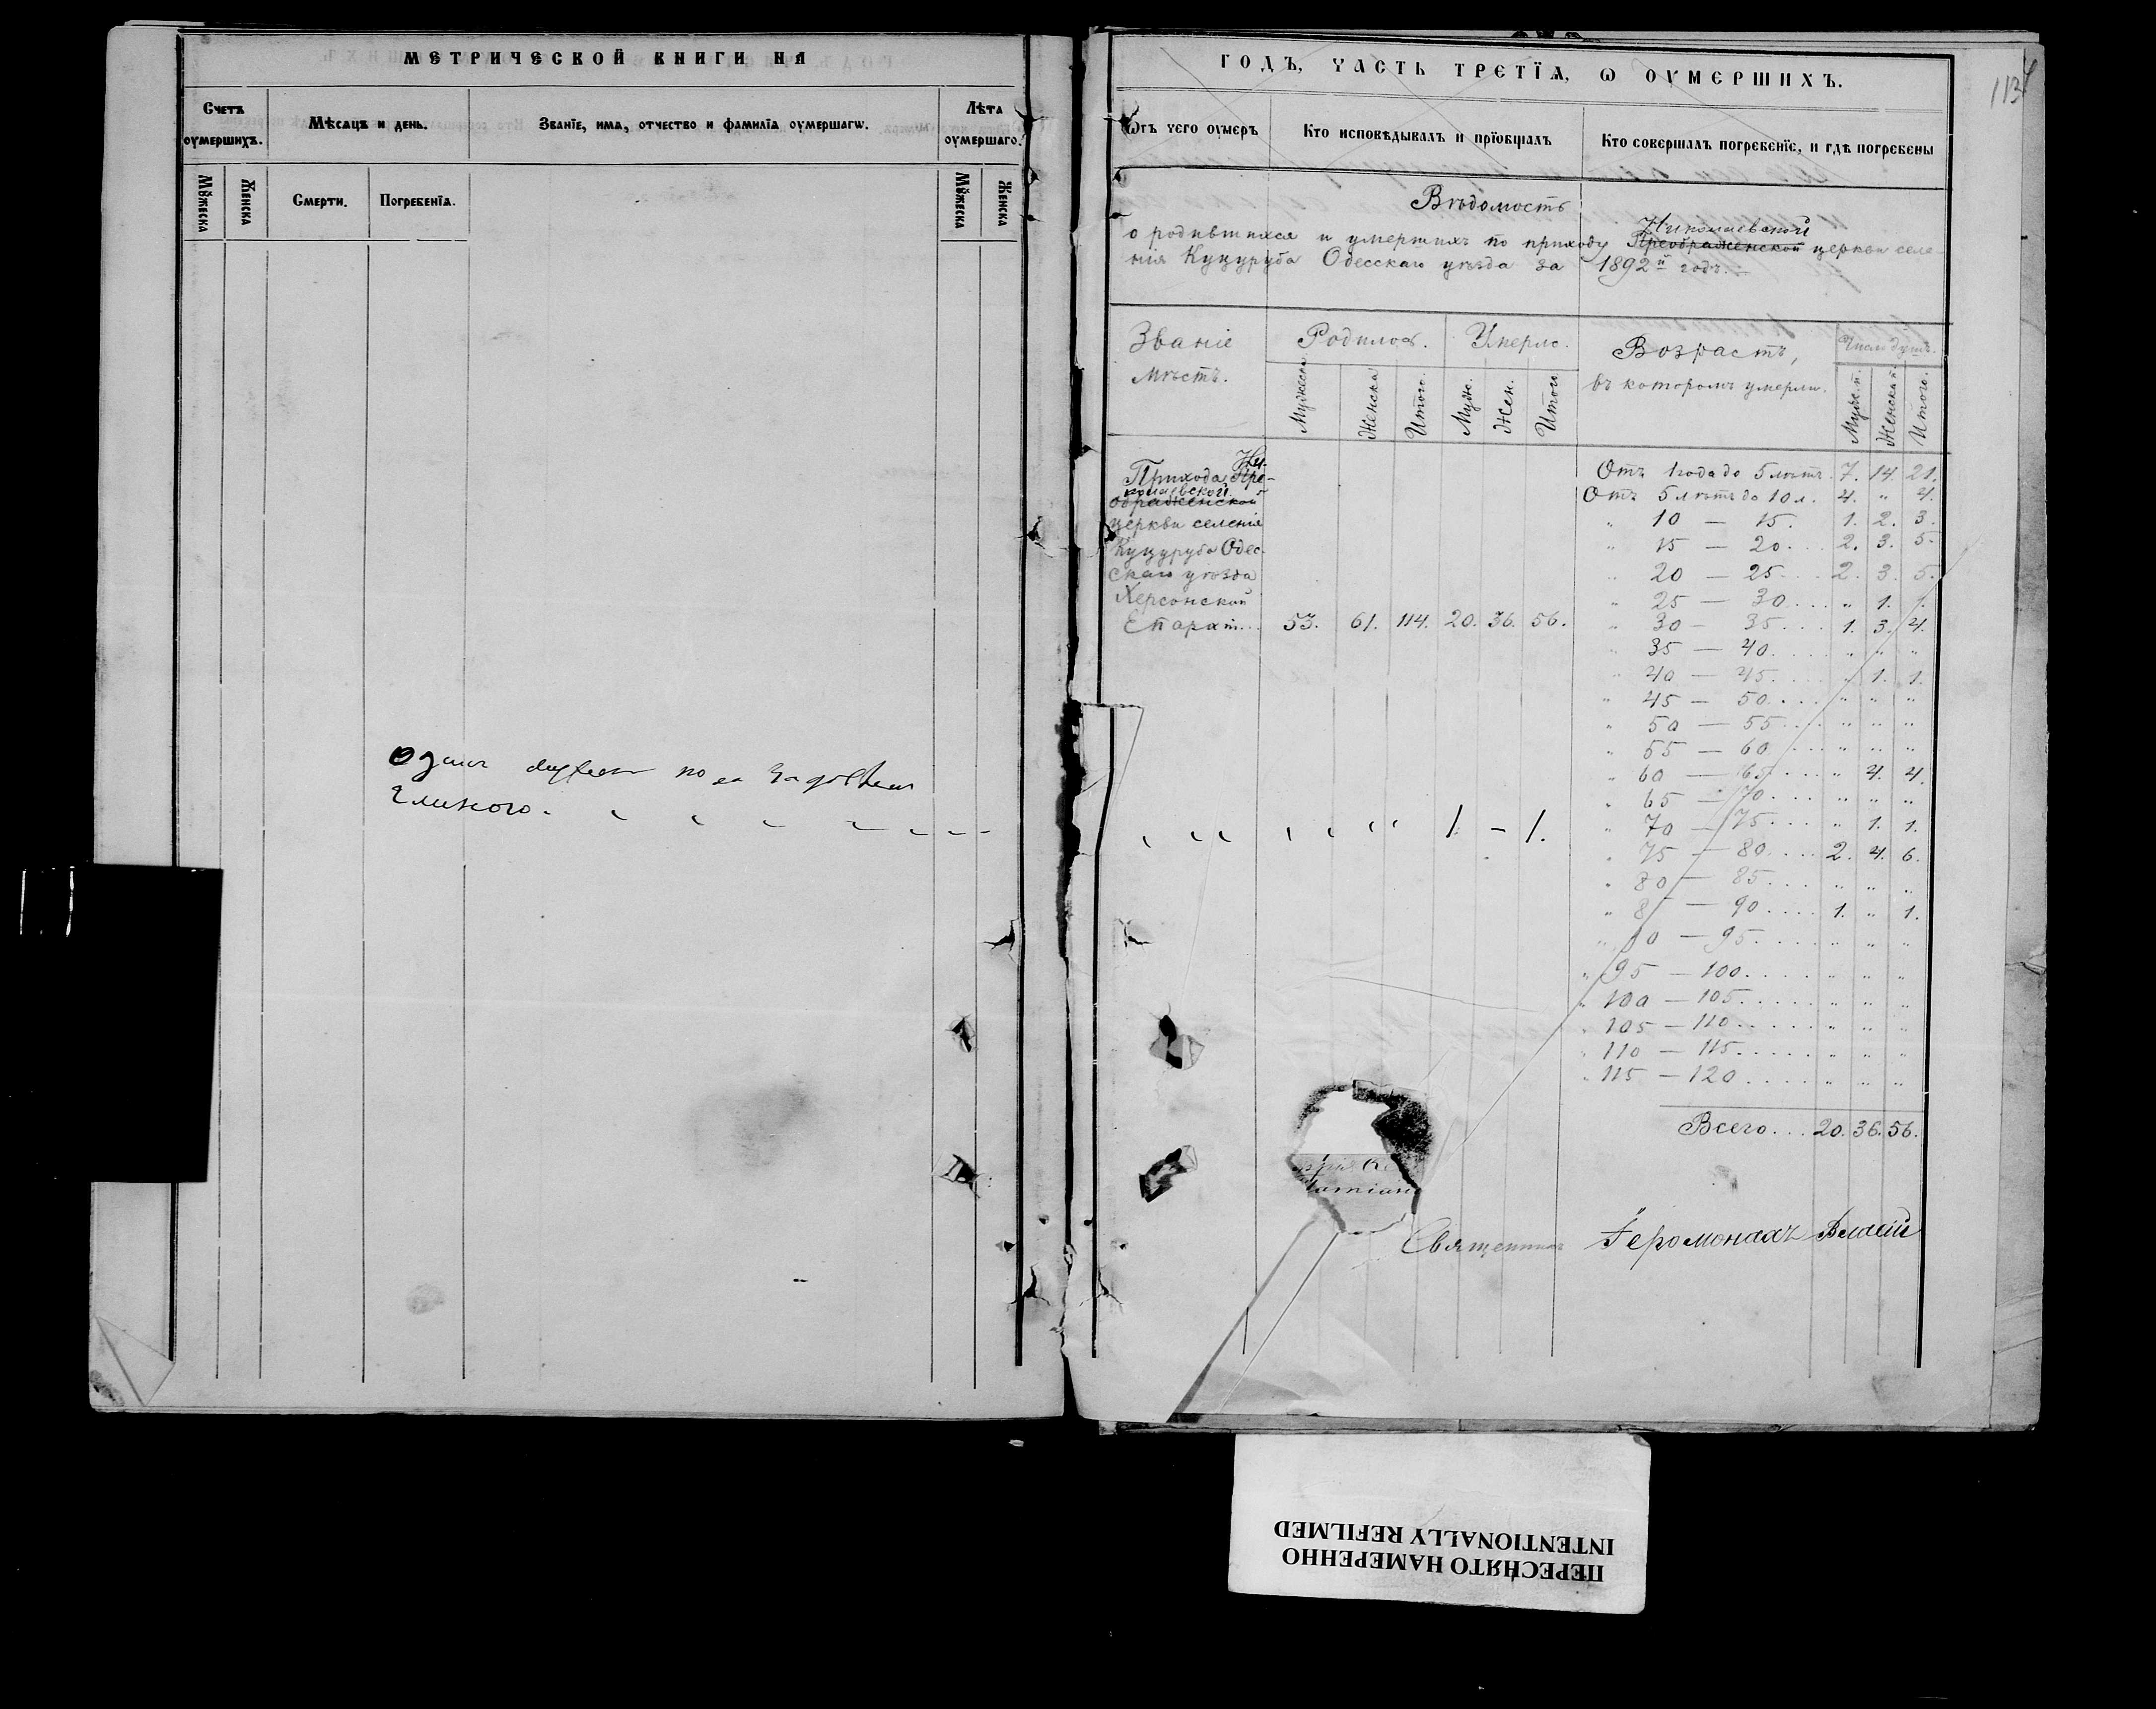 МЕТРИЧЕСКОЙ КНИГИ НА
Счетъ оумершихъ.
Мѣсяцъ и день.
Званїе, има, отчество и фамилїа оумершагѡ.
Лѣта оумершаго.
Мꙋжеска
Женска
Смерти.
Погребенїа.
Мꙋжеска
Женска
ГОДЪ, ЧАСТЬ ТРЕТЇА, Ѡ ОУМЕРШИХЪ.
113
Ѿтъ чего оумеръ
Кто исповѣдывалъ и прїобщалъ
Кто совершалъ погребенїе, и гдѣ погребены
Вѣдомость
Николаевской
о родившихся и умершихъ по приходу Преображенской церкви селе-
нія Куцуруба Одесскаго уѣзда за 1892й годъ.
Званіе мѣстъ.
Родилось.
Умерло.
Возрастъ,
въ которомъ умерли.
Число душъ.
Мужеска
Женска
Итого.
Муж.
Жен.
Итого
Муж. п.
Женска п.
Итого.
Ни-
Прихода Пре-
колаевской
ображенской
церкви селенія
Куцуруба Одес-
скаго уѣзда
Херсонской
Епарх... 53. 61. 114. 20. 36. 56.
Отъ 1 года до 5 лѣтъ. 7. 14. 21.
Отъ 5 лѣтъ до 10 л. 4. " 4.
" 10 — 15. 1. 2. 3.
" 15 — 20... 2. 3. 5.
" 20 — 25... 2. 3. 5.
" 25 — 30.... " 1. 1.
" 30 — 35.... 1. 3. 4.
" 35 — 40.... " " "
" 40 — 45.... " 1. 1.
" 45 — 50.... " " "
" 50 — 55.... " " "
" 55 — 60.... " " "
" 60 — 65.... " 4. 4.
" 65 — 70.... " " "
" 70 — 75.... " 1. 1.
" 75 — 80.... 2. 4. 6.
" 80 — 85.... " " "
" 85 — 90.... 1. " 1.
" 90 — 95.... " " "
" 95 — 100..... " " "
" 100 — 105..... " " "
" 105 — 110..... " " "
" 110 — 115..... " " "
" 115 — 120.... " " "
Всего... 20. 36. 56.
1. — 1.
Священникъ Іеромонахъ Власій
INTENTIONALLY REFILMED
ПЕРЕСНЯТО НАМЕРЕННО